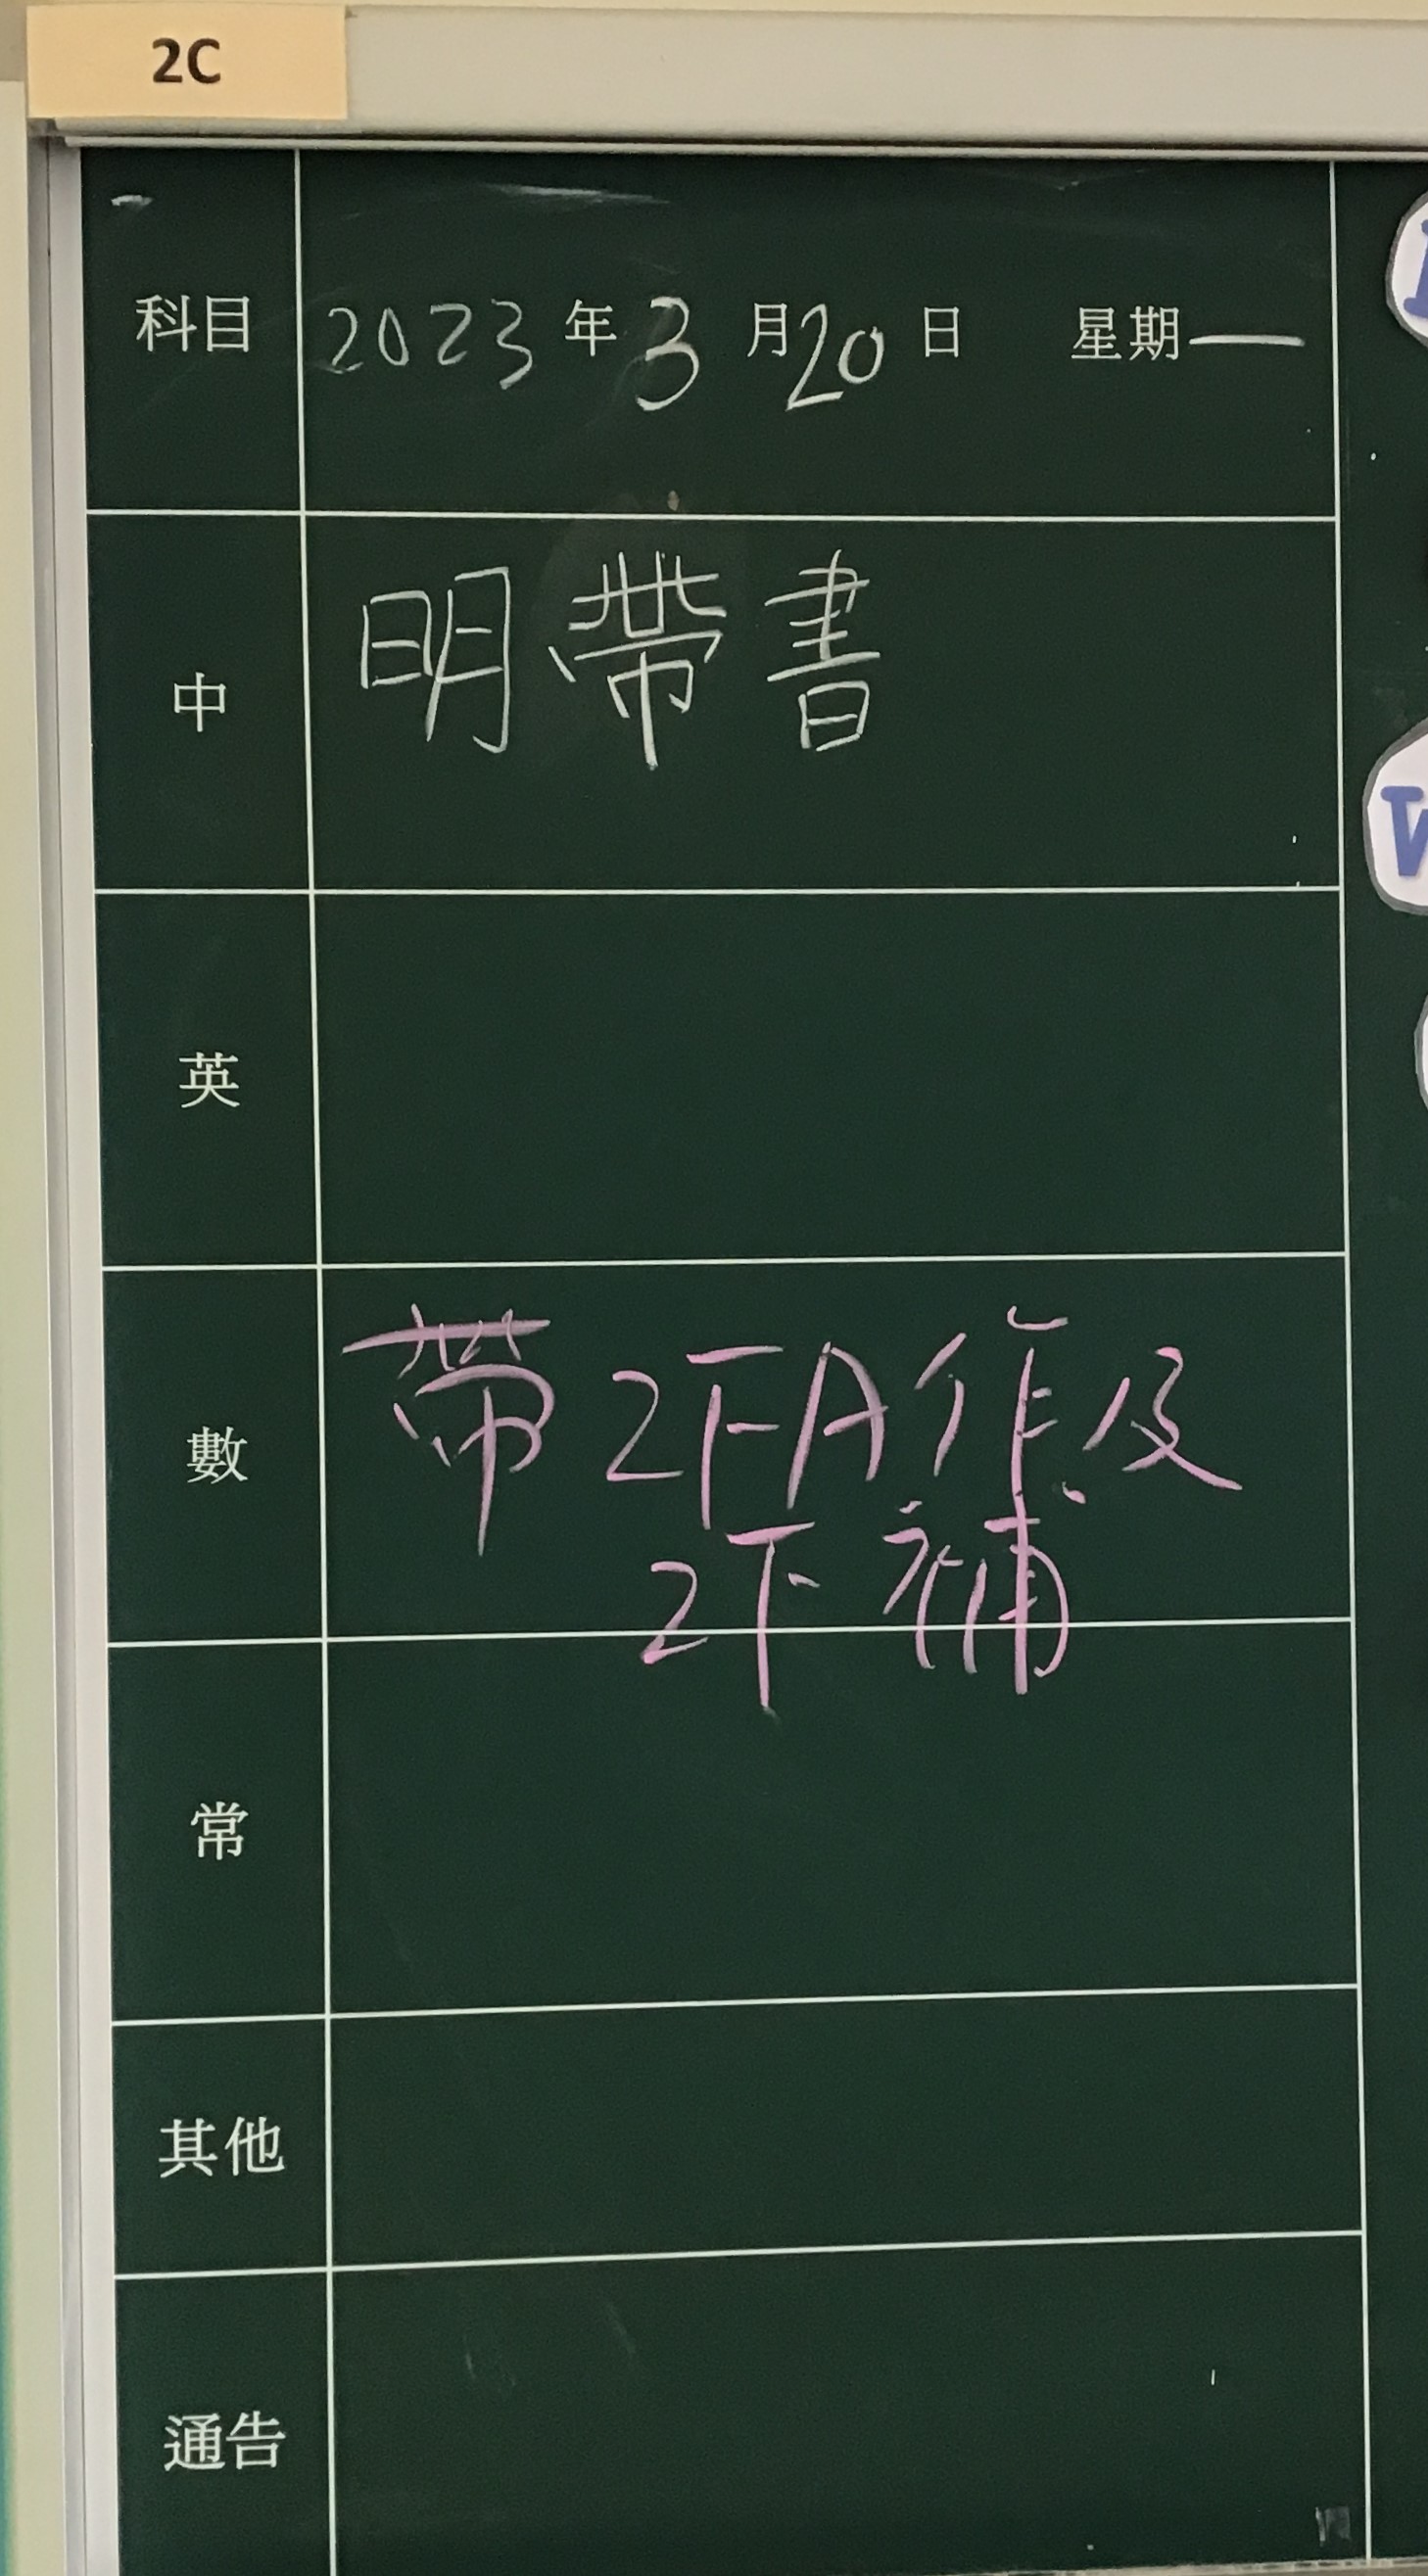 2C
科目 2023年3月20日 星期一
中 明帶書
英
數 帶2下A作及
2下補
常
其他
通告